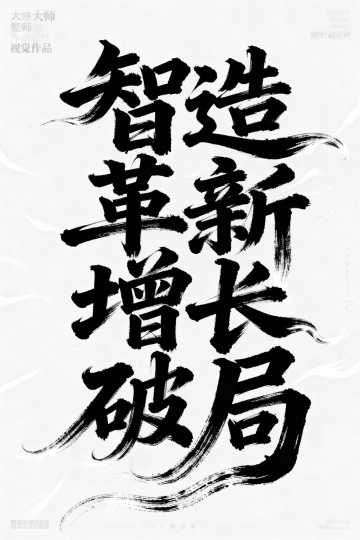 大师大师
视觉作品
智造
革新
增长
破局